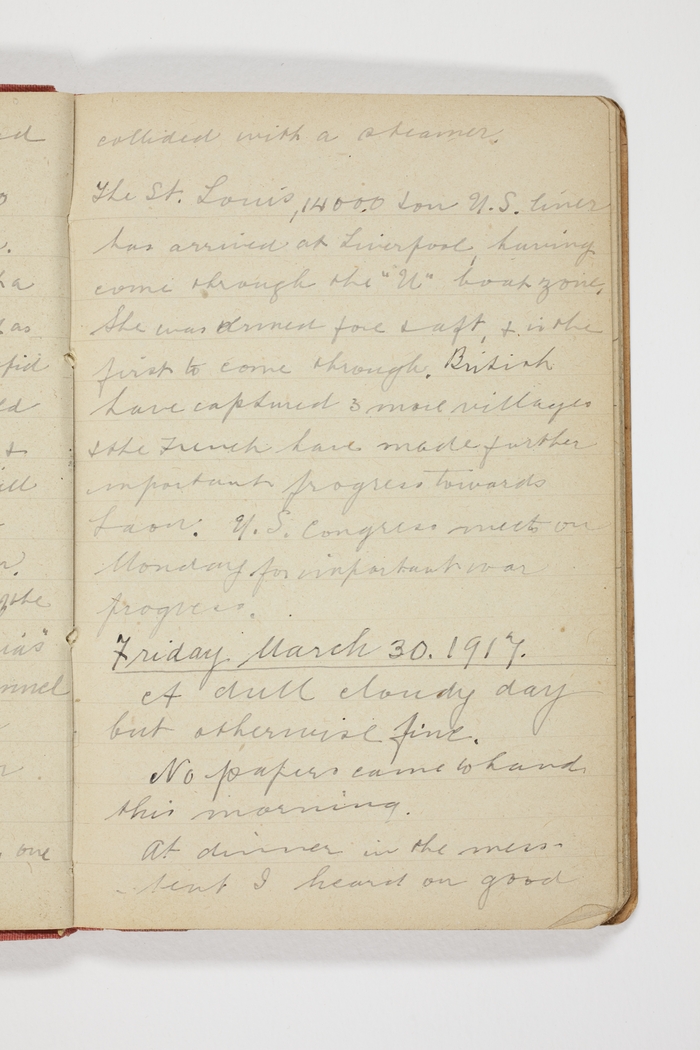 collided with a steamer.
The St. Louis, 14000 ton U.S. liner
has arrived at Liverpool, having
come through the "U" boat zone.
She was armed fore & aft, & is the
first to come through. British
have captured 3 more villages
& the French have made further
important progress towards
Laon. U.S. Congress meets on
Monday for important war
progress.
Friday March 30. 1917.
A dull cloudy day
but otherwise fine.
No papers came to hand
this morning.
At dinner in the mess-
tent I heard on good